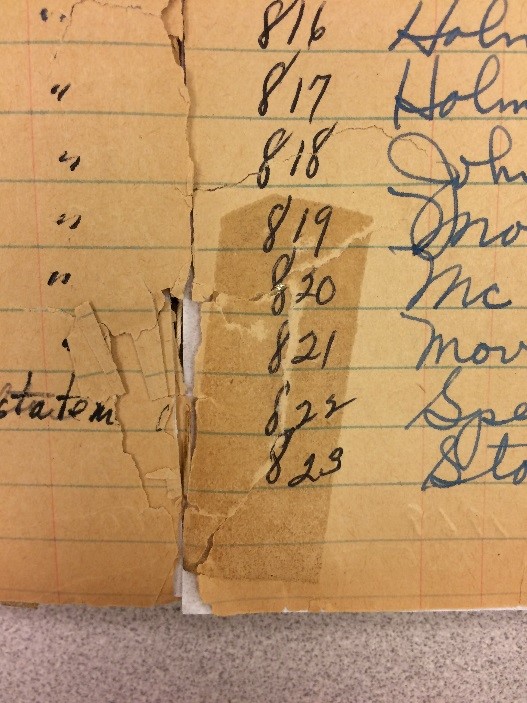 " 816 Holm
" 817 Holm
" 818 John
" 819 Mo
" 820 Mc
821 Mov
statem 822 Spe
823 Sto